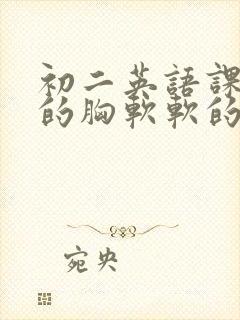 初二英語課
的胸軟軟的
宛央